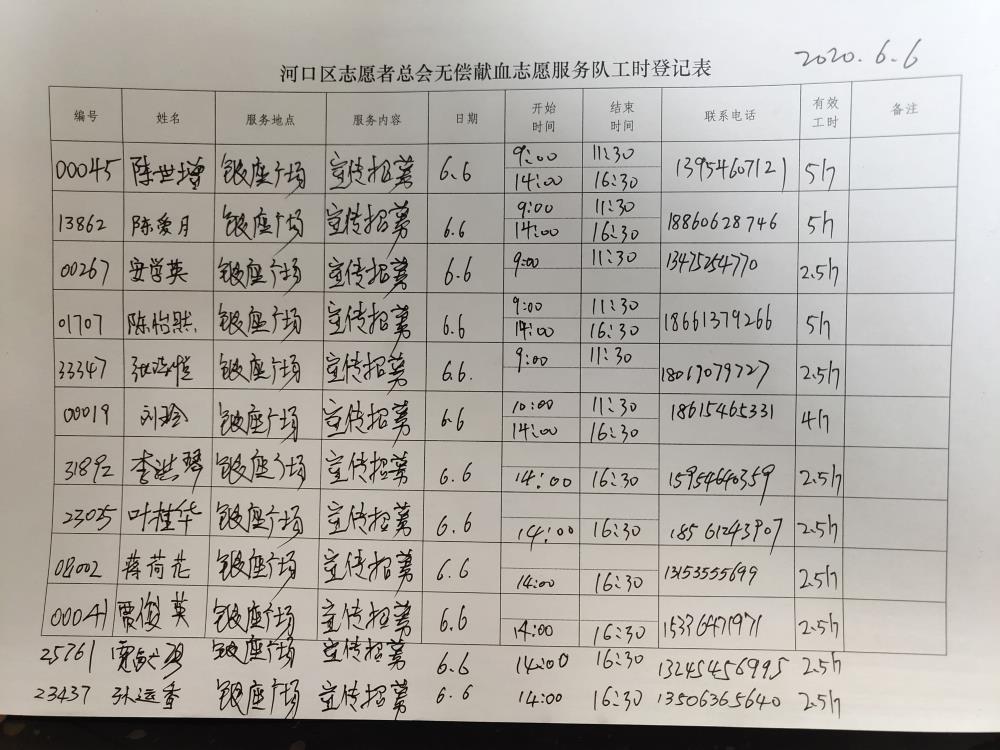 2020.6.6
河口区志愿者总会无偿献血志愿服务队工时登记表
编号 姓名 服务地点 服务内容 日期 开始时间 结束时间 联系电话 有效工时 备注
00045 陈世增 银座广场 宣传招募 6.6 9:00 11:30 13954607121 5h
14:00 16:30
13862 陈爱月 银座广场 宣传招募 6.6 9:00 11:30 18860628746 5h
14:00 16:30
00267 安学英 银座广场 宣传招募 6.6 9:00 11:30 13475254770 2.5h
01707 陈怡然 银座广场 宣传招募 6.6 9:00 11:30 18661379266 5h
14:00 16:30
33347 银座广场 宣传招募 6.6. 9:00 11:30 18067079727 2.5h
00019 刘玲 银座广场 宣传招募 6.6 10:00 11:30 18615465331 4h
14:00 16:30
31892 李洪琴 银座广场 宣传招募 6.6 14:00 16:30 15954640359 2.5h
23025 叶桂华 银座广场 宣传招募 6.6 14:00 16:30 18561243907 2.5h
08002 蒋荷花 银座广场 宣传招募 6.6 14:00 16:30 13153555699 2.5h
00041 贾俊英 银座广场 宣传招募 6.6 14:00 16:30 15376471971 2.5h
25761 银座广场 宣传招募 6.6 14:00 16:30 13245456995 2.5h
23437 张运香 银座广场 宣传招募 6.6 14:00 16:30 13506365640 2.5h